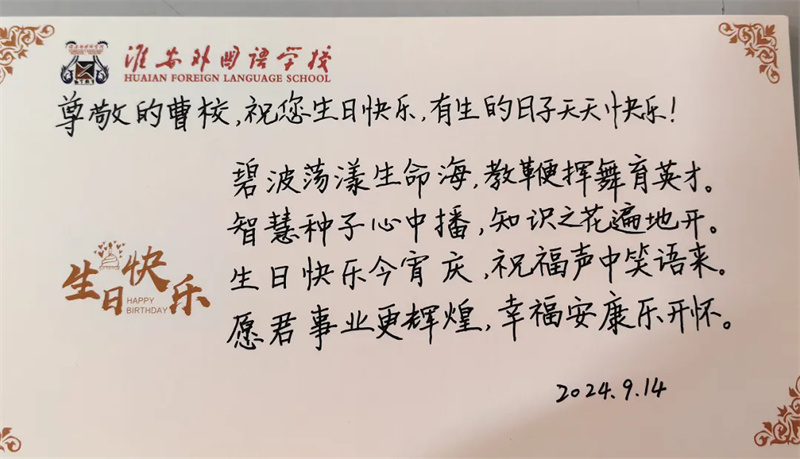 淮安外国语学校
HUAIAN FOREIGN LANGUAGE SCHOOL
尊敬的曹校,祝您生日快乐,有生的日子天天快乐!
碧波荡漾生命海,教鞭挥舞育英才。
智慧种子心中播,知识之花遍地开。
生日快乐今宵庆,祝福声中笑语来。
愿君事业更辉煌,幸福安康乐开怀。
生日快乐
HAPPY
BIRTHDAY
2024.9.14